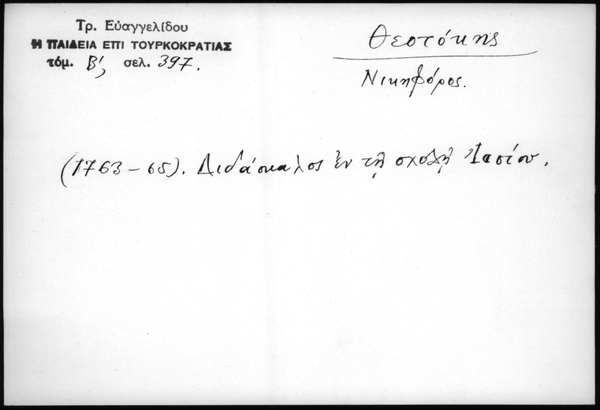 Τρ. Εὐαγγελίδου
Η ΠΑΙΔΕΙΑ ΕΠΙ ΤΟΥΡΚΟΚΡΑΤΙΑΣ
τόμ. Β', σελ. 397.
Θεοτόκης
Νικηφόρος.
(1763-65). Διδάσκαλος ἐν τῇ σχολῇ Ἰασίου.